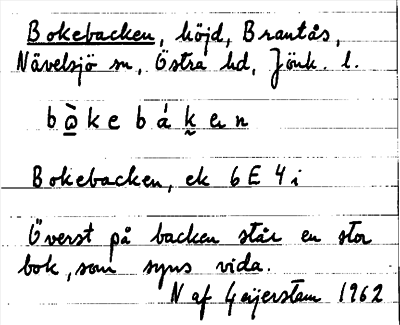 Bokebacken, höjd, Brantås,
Nävelsjö sn, Östra hd, Jönk. l.
bò̲kebák̰en
Bokebacken, ek 6E 4i
Överst på backen står en stor
bok, som syns vida.
N af Geijerstam 1962